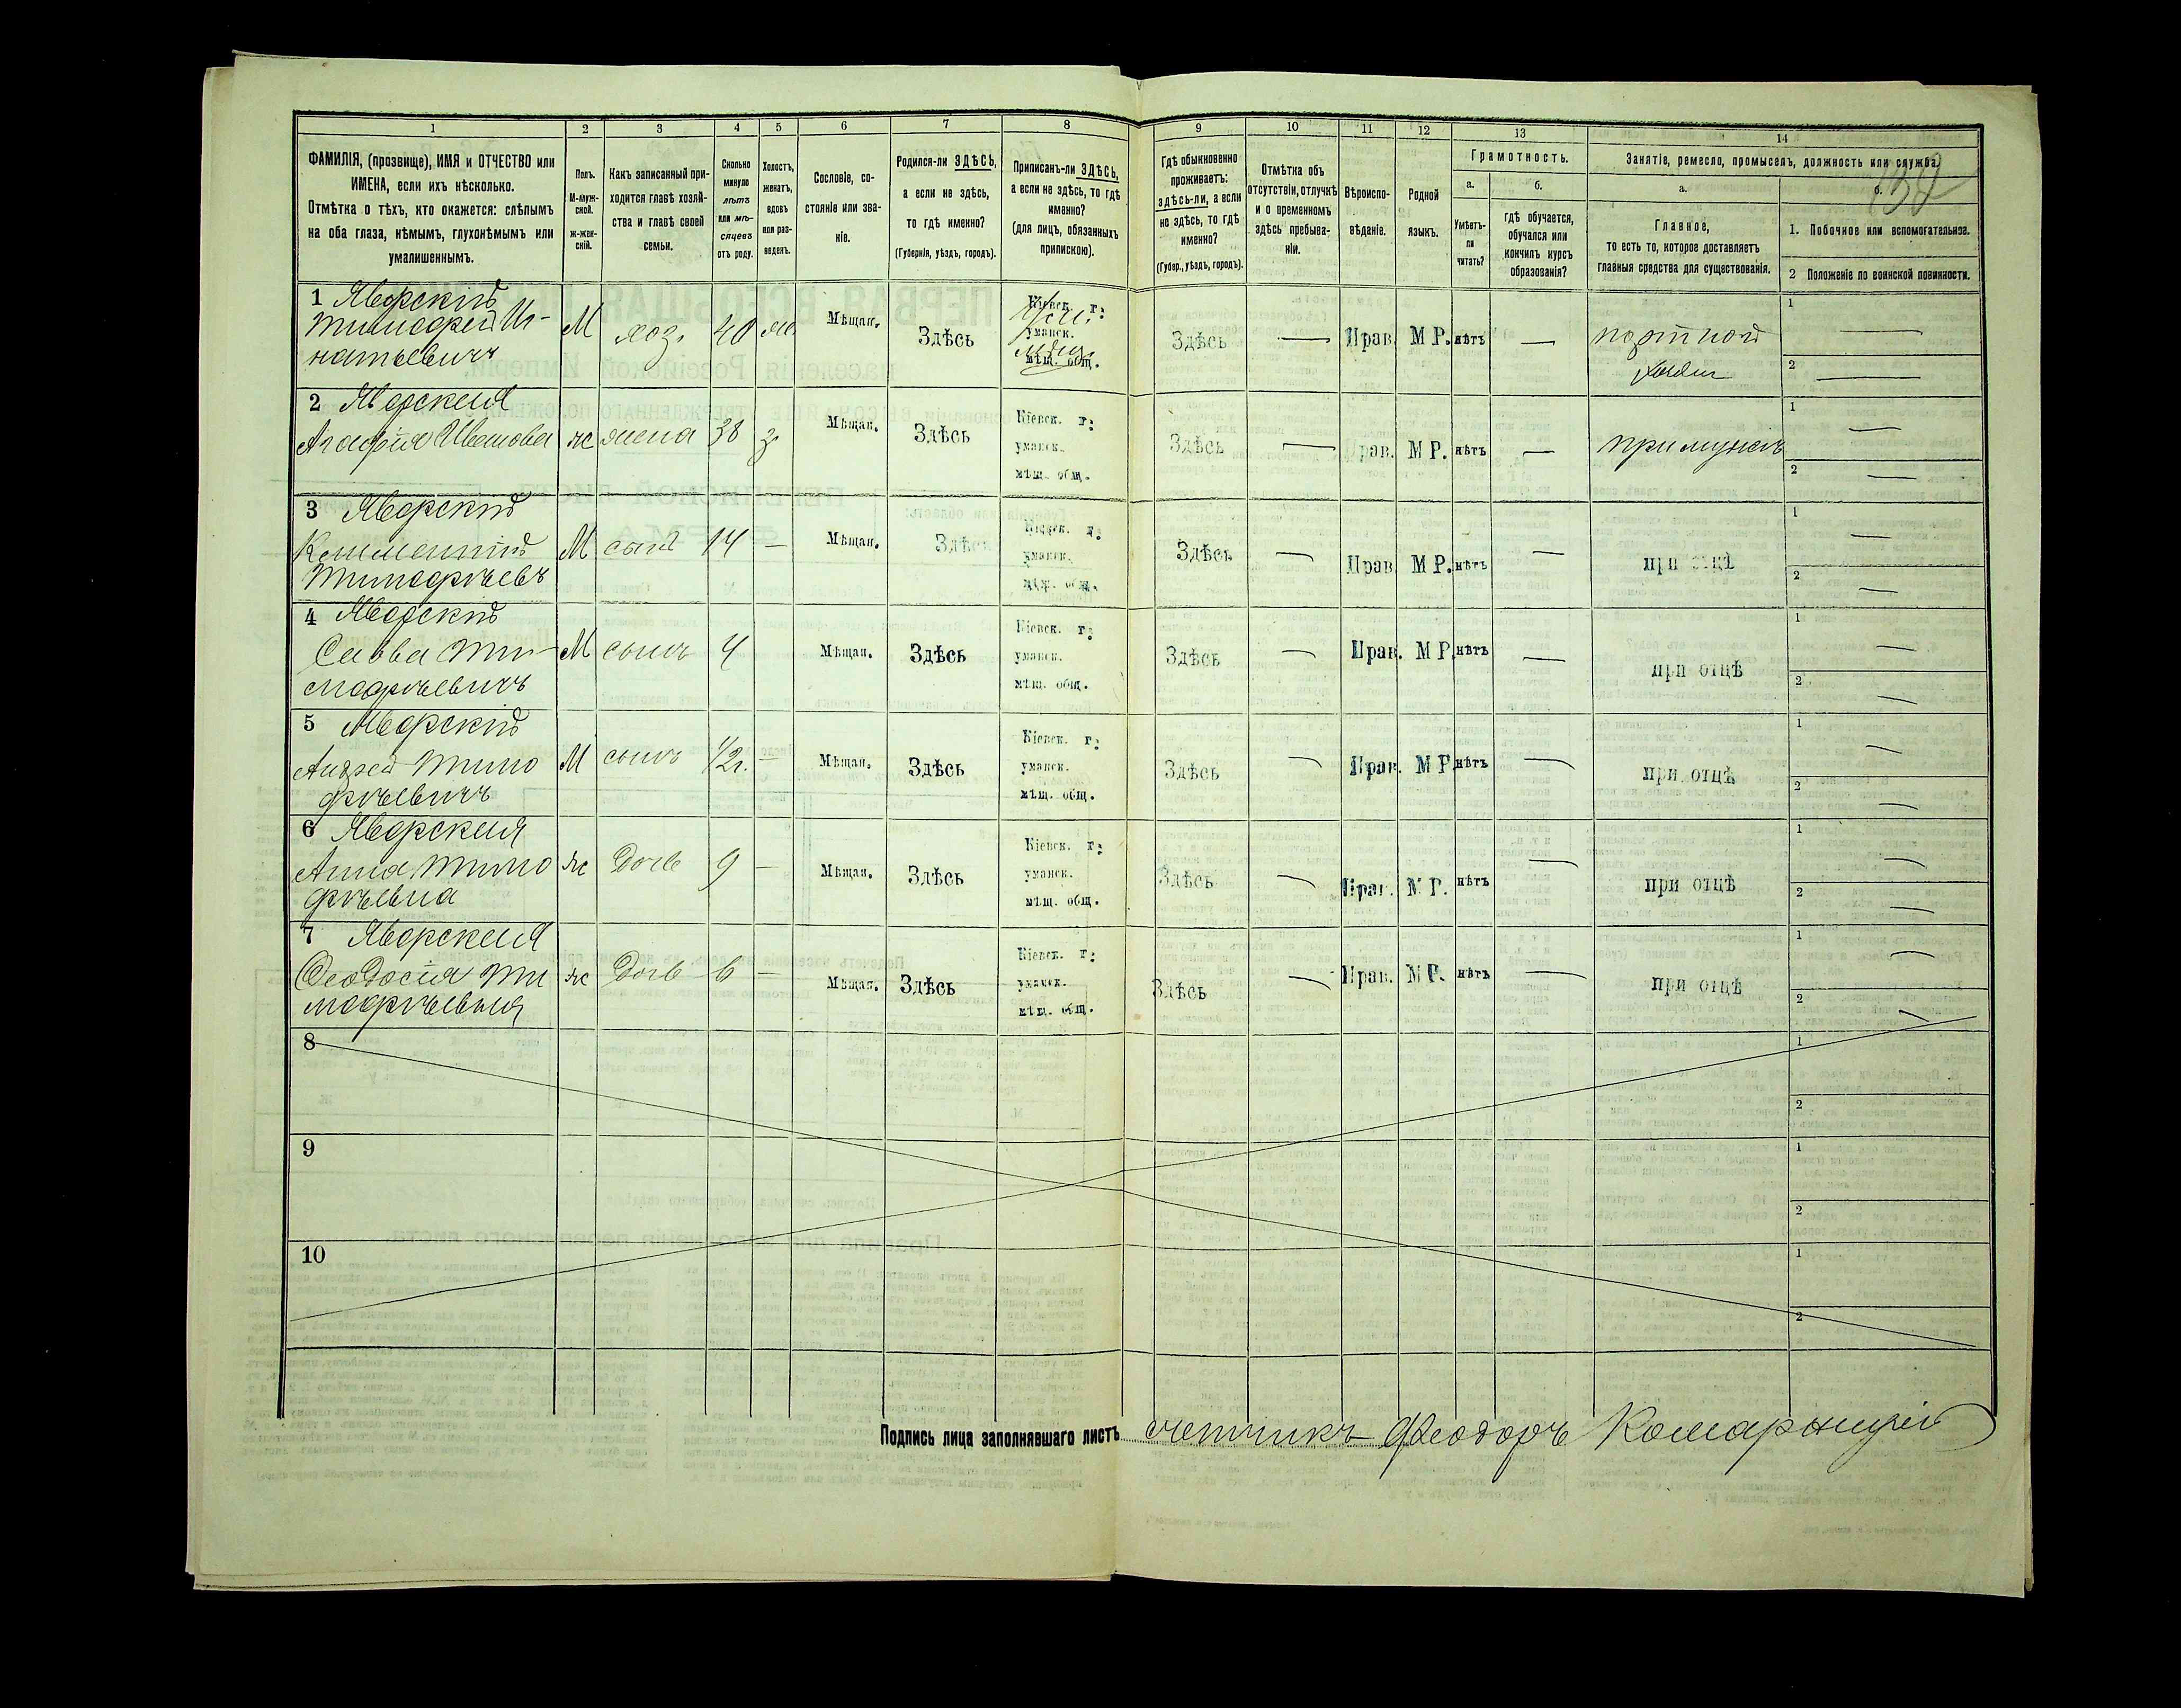 1 2 3 4 5 6 7 8 9 10 11 12 13 14
ФАМИЛІЯ, (прозвище), ИМЯ и ОТЧЕСТВО или
ИМЕНА, если ихъ нѣсколько.
Отмѣтка о тѣхъ, кто окажется: слѣпымъ
на оба глаза, нѣмымъ, глухонѣмымъ или
умалишеннымъ.
Полъ.
М-муж-
ской.
ж-жен-
скій.
Какъ записанный при-
ходится главѣ хозяй-
ства и главѣ своей
семьи.
Сколько
минуло
лѣтъ
или мѣ-
сяцевъ
отъ роду.
Холостъ,
женатъ,
вдовъ
или раз-
веденъ.
Сословіе, со-
стояніе или зва-
ніе.
Родился-ли ЗДѢСЬ,
а если не здѣсь,
то гдѣ именно?
(Губернія, уѣздъ, городъ).
Приписанъ-ли ЗДѢСЬ,
а если не здѣсь, то гдѣ
именно?
(для лицъ, обязанныхъ
припискою).
Гдѣ обыкновенно
проживаетъ:
здѣсь-ли, а если
не здѣсь, то гдѣ
именно?
(Губер., уѣздъ, городъ).
Отмѣтка объ
отсутствіи, отлучкѣ
и о временномъ
здѣсь пребыва-
ніи.
Вѣроиспо-
вѣданіе.
Родной
языкъ.
Грамотность.
а.
Умѣетъ-
ли
читать?
б.
гдѣ обучается,
обучался или
кончилъ курсъ
образованія?
Занятіе, ремесло, промыселъ, должность или служба.
а.
Главное,
то есть то, которое доставляетъ
главныя средства для существованія.
б.
1. Побочное или вспомогательное.
2 Положеніе по воинской повинности.
1 Яворскій
Тимофей Иг-
натьевичъ
М хоз. 40 Мѣщан. Здѣсь
Кіевск. г.
уманск.
мѣщ. общ.
Здѣсь — Прав. М Р. нѣтъ — портной
1 —
2 —
2 Яворская
Агафія Иванова
ж жена 38 з. Мѣщан. Здѣсь
Кіевск. г.
уманск.
мѣщ. общ.
Здѣсь — Прав. М Р. нѣтъ — при мужѣ
1 —
2 —
3 Яворскій
Тимофѣевъ
М сынъ 14 — Мѣщан. Здѣсь
Кіевск. г.
уманск.
мѣщ. общ.
Здѣсь — Прав. М Р. нѣтъ — при отцѣ
1 —
2 —
4 Яворскій
Савва Ти-
мофѣевичъ
М сынъ 4 Мѣщан. Здѣсь
Кіевск. г.
уманск.
мѣщ. общ.
Здѣсь — Прав. М Р. нѣтъ — при отцѣ
1 —
2 —
5 Яворскій
Андрей Тимо
фѣевичъ
М сынъ 1/2 г. — Мѣщан. Здѣсь
Кіевск. г.
уманск.
мѣщ. общ.
Здѣсь — Прав. М Р. нѣтъ — при отцѣ
1 —
2 —
6 Яворская
Анна Тимо
фѣевна
ж дочь 9 — Мѣщан. Здѣсь
Кіевск. г.
уманск.
мѣщ. общ.
Здѣсь — Прав. М Р. нѣтъ — при отцѣ
1 —
2 —
7 Яворская
Феодосія Ти
мофѣевна
ж дочь 6 — Мѣщан. Здѣсь
Кіевск. г.
уманск.
мѣщ. общ.
Здѣсь — Прав. М Р. нѣтъ — при отцѣ
1 —
2 —
8
1
2
9
1
2
10
1
2
Подпись лица заполнявшаго листъ счетчикъ Феодоръ Комарницкій